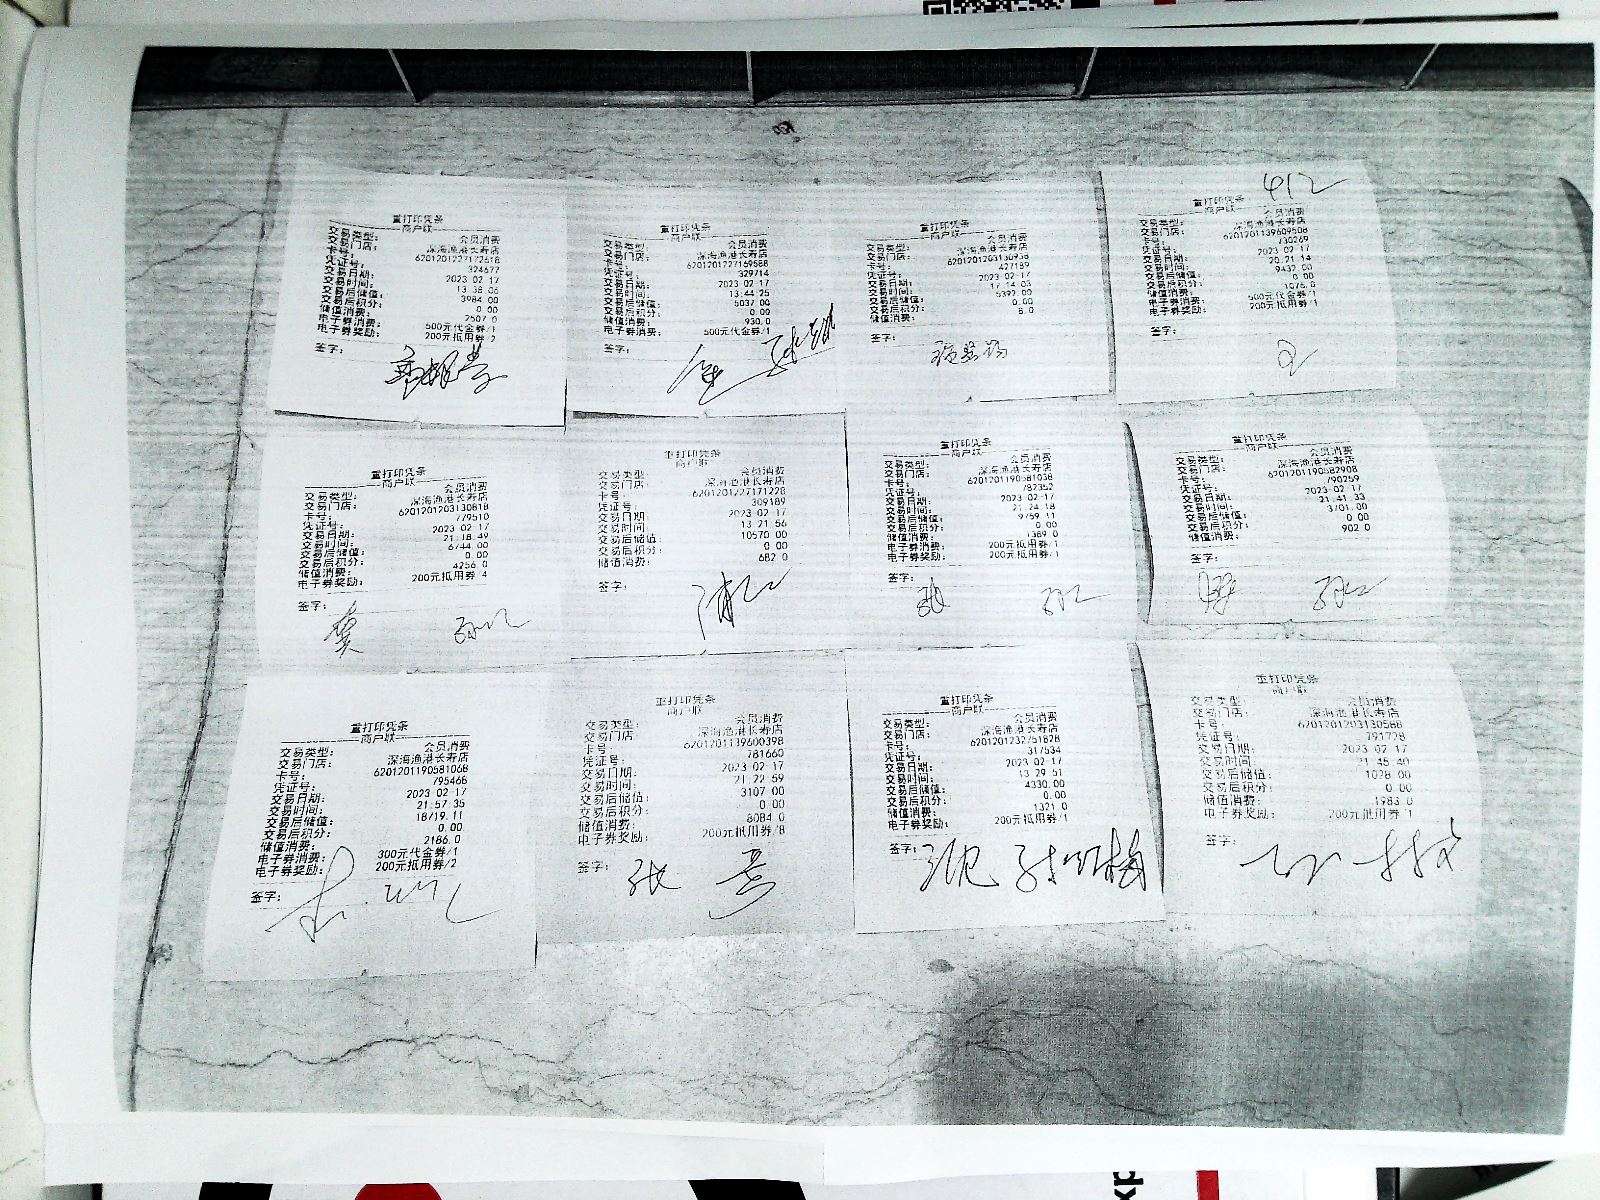 重打印凭条
商户联
交易类型： 会员消费
交易门店： 深海渔港长寿店
卡号： 6201201227172618
凭证号： 324677
交易日期： 2023-02-17
交易时间： 13:38:06
交易后储值： 3984.00
交易后积分： 0.00
储值消费： 2507.0
电子券消费： 500元代金券/1
电子券奖励： 200元抵用券/2
签字：
重打印凭条
商户联
交易类型： 会员消费
交易门店： 深海渔港长寿店
卡号： 6201201227169588
凭证号： 329714
交易日期： 2023-02-17
交易时间： 13:44:25
交易后储值： 5037.00
交易后积分： 0.00
储值消费： 930.0
电子券消费： 500元代金券/1
签字：
重打印凭条
商户联
交易类型： 会员消费
交易门店： 深海渔港长寿店
卡号： 6201201203130938
凭证号： 427189
交易日期： 2023-02-17
交易时间： 17:14:03
交易后储值： 5392.00
交易后积分： 0.00
储值消费： 8.0
签字：
412
重打印凭条
商户联
交易类型： 会员消费
交易门店： 深海渔港长寿店
卡号： 6201201139609508
凭证号： 730269
交易日期： 2023-02-17
交易时间： 20:21:14
交易后储值： 9432.00
交易后积分： 0.00
储值消费： 1076.0
电子券消费： 500元代金券/1
电子券奖励： 200元抵用券/1
签字：
重打印凭条
商户联
交易类型： 会员消费
交易门店： 深海渔港长寿店
卡号： 6201201203130818
凭证号： 779510
交易日期： 2023-02-17
交易时间： 21:18:49
交易后储值： 6744.00
交易后积分： 0.00
储值消费： 4256.0
电子券奖励： 200元抵用券/4
签字：
重打印凭条
商户联
交易类型： 会员消费
交易门店： 深海渔港长寿店
卡号： 6201201227171228
凭证号： 309189
交易日期： 2023-02-17
交易时间： 13:21:56
交易后储值： 10570.00
交易后积分： 0.00
储值消费： 682.0
签字：
重打印凭条
商户联
交易类型： 会员消费
交易门店： 深海渔港长寿店
卡号： 6201201190581038
凭证号： 782352
交易日期： 2023-02-17
交易时间： 21:24:18
交易后储值： 9759.11
交易后积分： 0.00
储值消费： 1389.0
电子券消费： 200元抵用券/1
电子券奖励： 200元抵用券/1
签字：
重打印凭条
商户联
交易类型： 会员消费
交易门店： 深海渔港长寿店
卡号： 6201201190582908
凭证号： 790259
交易日期： 2023-02-17
交易时间： 21:41:33
交易后储值： 3701.00
交易后积分： 0.00
储值消费： 902.0
签字：
重打印凭条
商户联
交易类型： 会员消费
交易门店： 深海渔港长寿店
卡号： 6201201190581068
凭证号： 795466
交易日期： 2023-02-17
交易时间： 21:57:35
交易后储值： 18719.11
交易后积分： 0.00
储值消费： 2186.0
电子券消费： 300元代金券/1
电子券奖励： 200元抵用券/2
签字：
重打印凭条
商户联
交易类型： 会员消费
交易门店： 深海渔港长寿店
卡号： 6201201139600398
凭证号： 781660
交易日期： 2023-02-17
交易时间： 21:22:59
交易后储值： 3107.00
交易后积分： 0.00
储值消费： 8084.0
电子券奖励： 200元抵用券/8
签字： 张
重打印凭条
商户联
交易类型： 会员消费
交易门店： 深海渔港长寿店
卡号： 6201201232751828
凭证号： 317534
交易日期： 2023-02-17
交易时间： 13:29:51
交易后储值： 4330.00
交易后积分： 0.00
储值消费： 1321.0
电子券奖励： 200元抵用券/1
签字：
重打印凭条
商户联
交易类型： 会员消费
交易门店： 深海渔港长寿店
卡号： 6201201203130588
凭证号： 791728
交易日期： 2023-02-17
交易时间： 21:45:40
交易后储值： 1028.00
交易后积分： 0.00
储值消费： 1983.0
电子券奖励： 200元抵用券/1
签字：